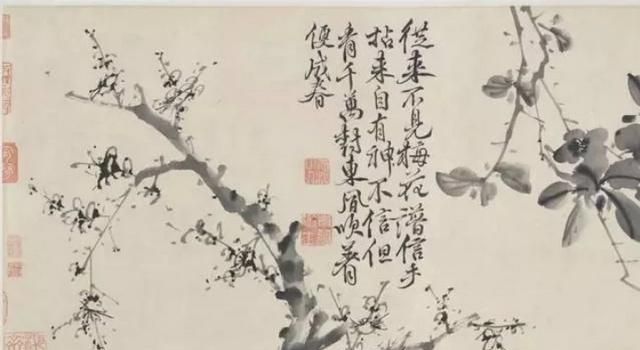 從來不見梅花譜信手
拈來自有神不信但
看千萬樹東風吹着
便成春